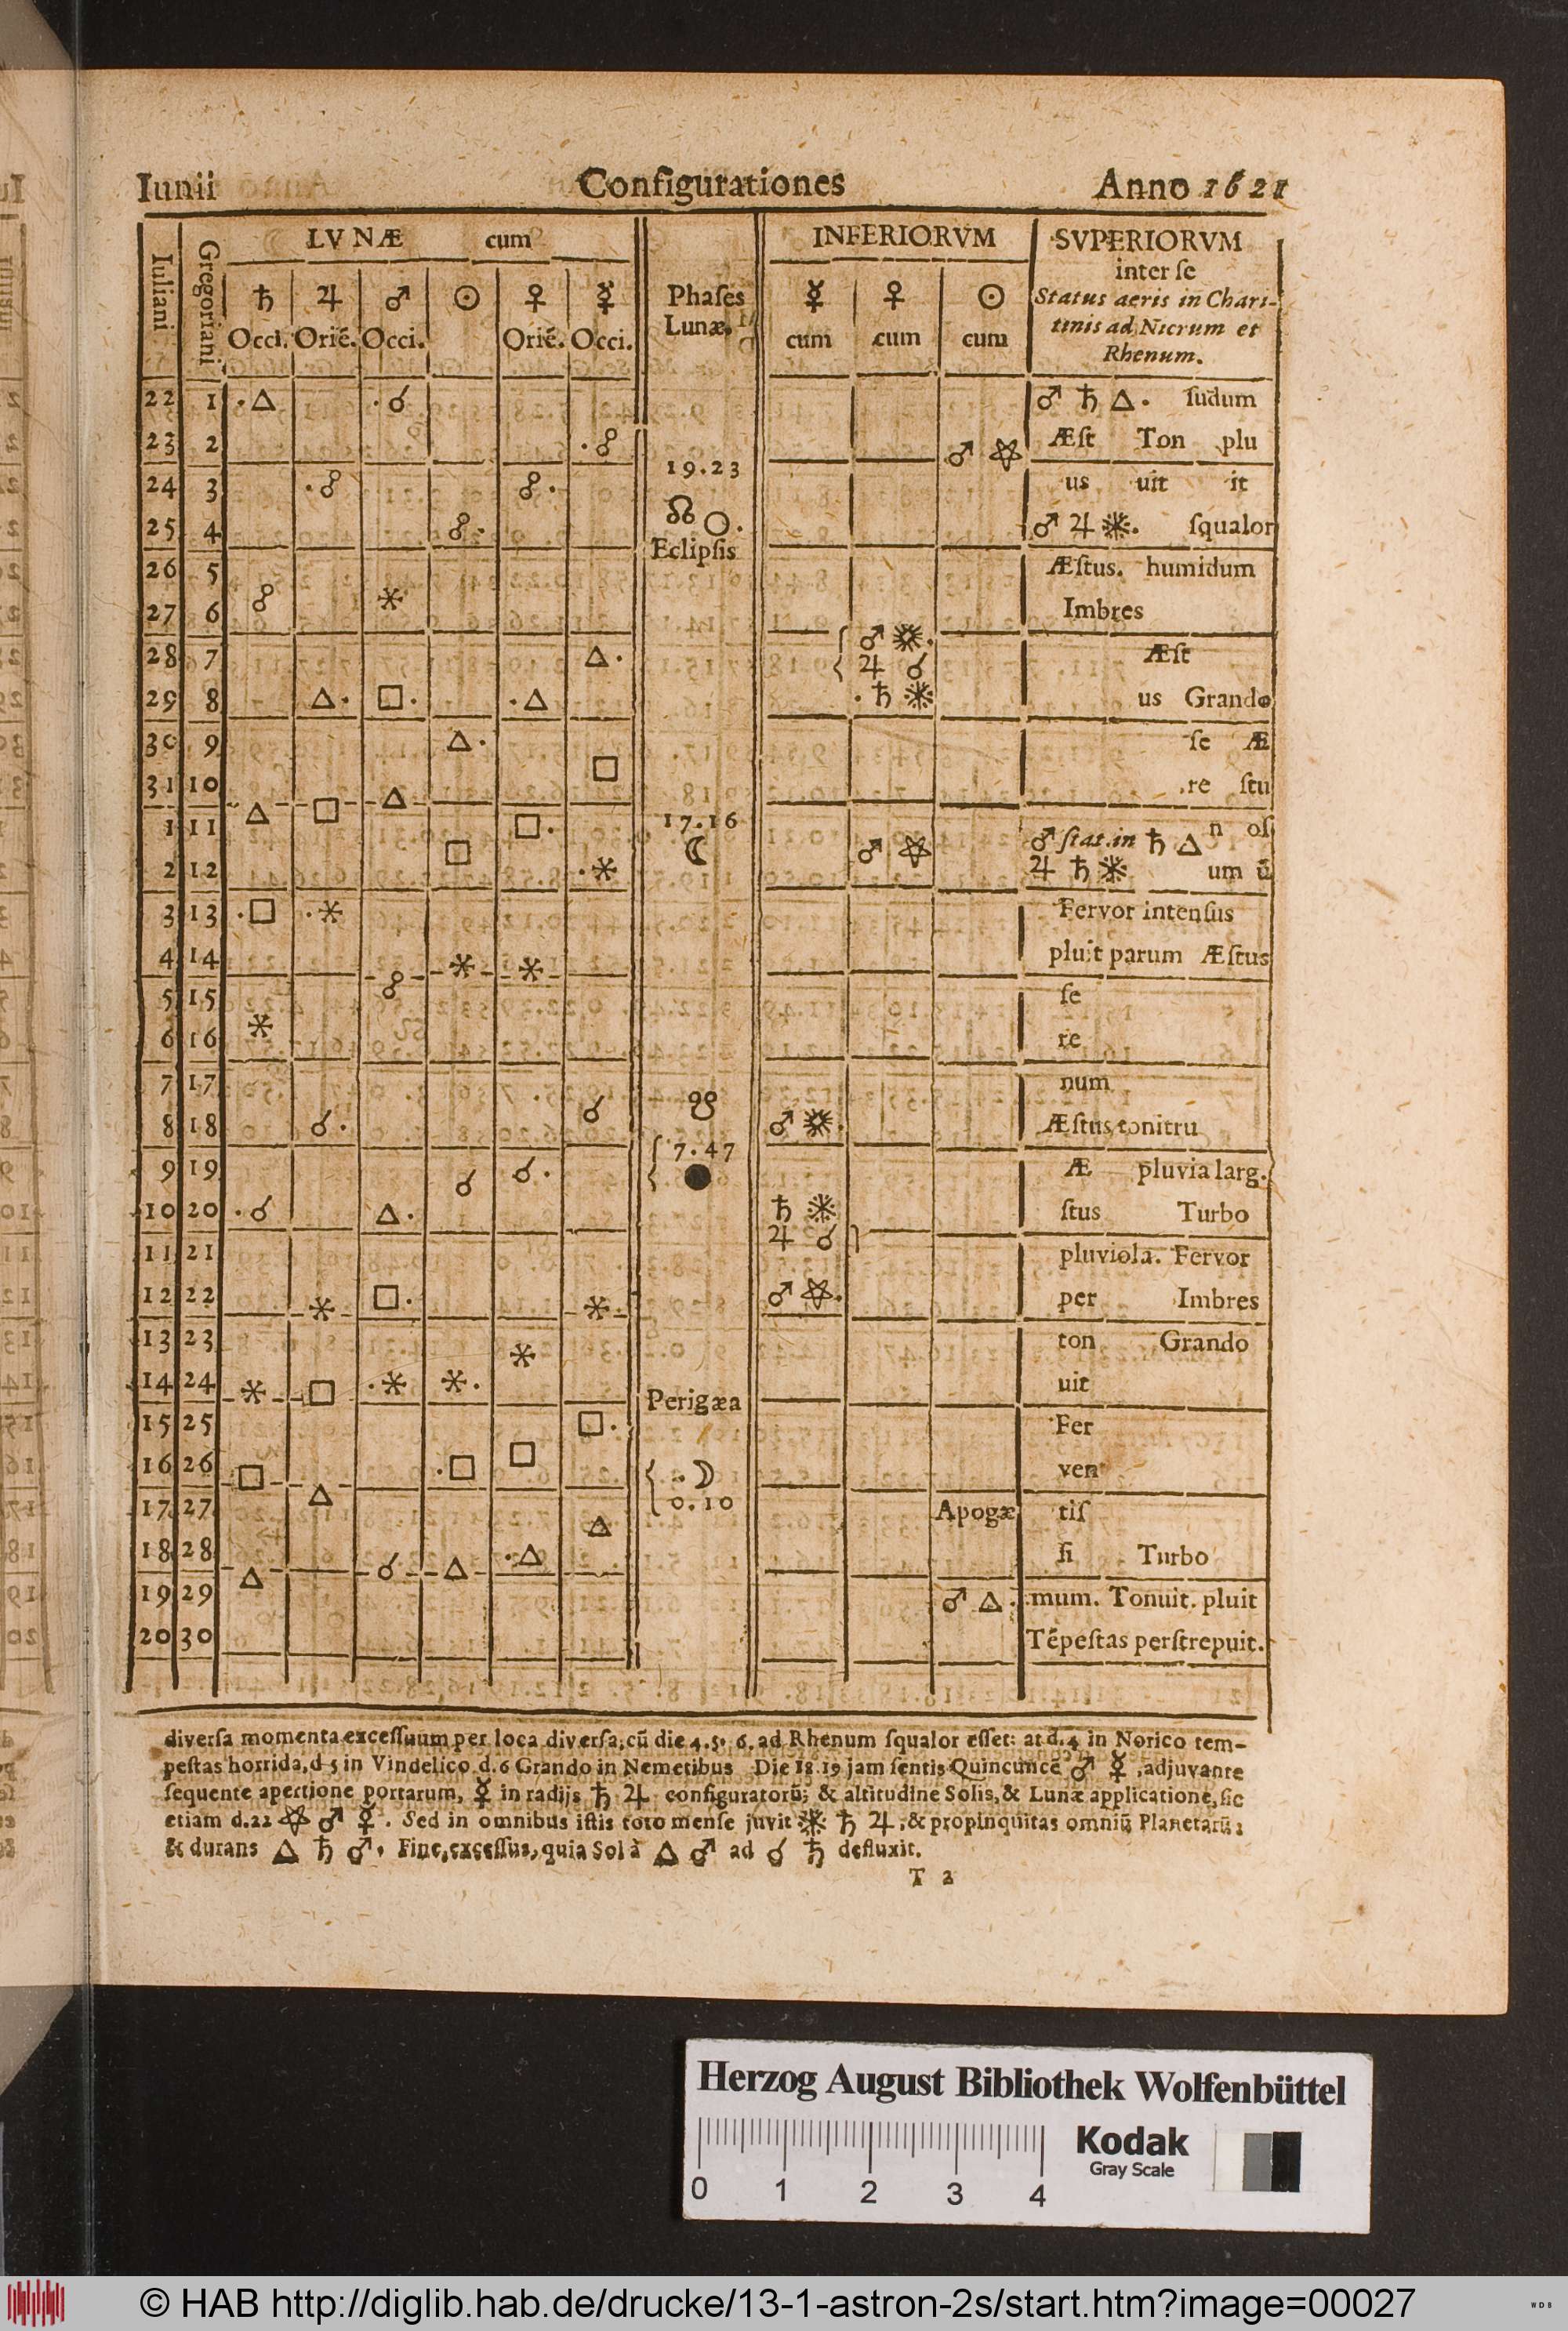 Iunii Configurationes Anno 1621
Iuliani Gregoriani LVNÆ cum Phaſes Lunæ. INFERIORVM SVPERIORVM
inter ſe
♄ ♃ ♂ ☉ ♀ ☿ ☿ ♀ ☉ Status aeris in Chari-
Occi. Orié. Occi. Orié. Occi. cum cum cum tinis ad Nicrum et
Rhenum.
22 1 ·△ ·☌ ♂ ♄ △. ſudum
23 2 ·☍ ♂ ⛤ Æſt Ton plu
19.23
24 3 ·☍ ☍· us uit it
25 4 ☍· ☊ ○. ♂ ♃ ⁕. ſqualor
Eclipſis
26 5 Æſtus. humidum
27 6 ☍ ⚹ Imbres
♂ ⁕.
28 7 △· ♃ ☌ Æſt
29 8 △· □· ·△ ·♄ ⁕ us Grando
30 9 △· ſe Æ
31 10 △ □ △ □ .re ſtu
1 11 □· 17.16 n oſ
2 12 □ ·⚹ ☾ ♂ ⛤ ♂ ſtat.in ♄ △
♃ ♄ ⁕ um ũ
3 13 ·□ ·⚹ Fervor intenſus
4 14 ⚹ ⚹ pluit parum Æſtus
5 15 ☍ ſe
6 16 ⚹ re
7 17 ☋ num
8 18 ☌· ☌ ♂ ⁕. Æſtus tonitru
9 19 ☌ ☌· 7.47 ● Æ pluvia larg.
10 20 ·☌ △· ♄ ⁕ ſtus Turbo
♃ ☌
11 21 pluviola. Fervor
12 22 ⚹ □· ⚹ ♂ ⛤. per Imbres
13 23 ⚹ ton Grando
14 24 ⚹ □ ·⚹ ⚹· Perigæa uit
15 25 □· Fer
16 26 □ ·□ □ ·☽ ven
17 27 △ △ 0.10 Apogæ tiſ
18 28 ☌ △ ·△ ſi Turbo
19 29 △ ♂ △· mum. Tonuit. pluit
20 30 Tẽpeſtas perſtrepuit.
diverſa momenta exceſſuum per loca diverſa, cũ die 4. 5. 6. ad Rhenum ſqualor eſſet: at d. 4 in Norico tem-
peſtas horrida, d 5 in Vindelico d. 6 Grando in Nemetibus Die 18.19 jam ſentis Quincuncẽ ♂ ☿, adjuvante
ſequente apertione portarum, ☿ in radijs ♄ ♃ configuratorũ; & altitudine Solis, & Lunæ applicatione, ſic
etiam d. 22 ⛤ ♂ ☿. Sed in omnibus iſtis toto menſe juvit ⁕ ♄ ♃, & propinquitas omniũ Planetarũ;
& durans △ ♄ ♂. Fine, exceſſus, quia Sol à △ ♂ ad ☌ ♄ defluxit.
T 2
Herzog August Bibliothek Wolfenbüttel
Kodak
Gray Scale
0 1 2 3 4
© HAB http://diglib.hab.de/drucke/13-1-astron-2s/start.htm?image=00027
WDB